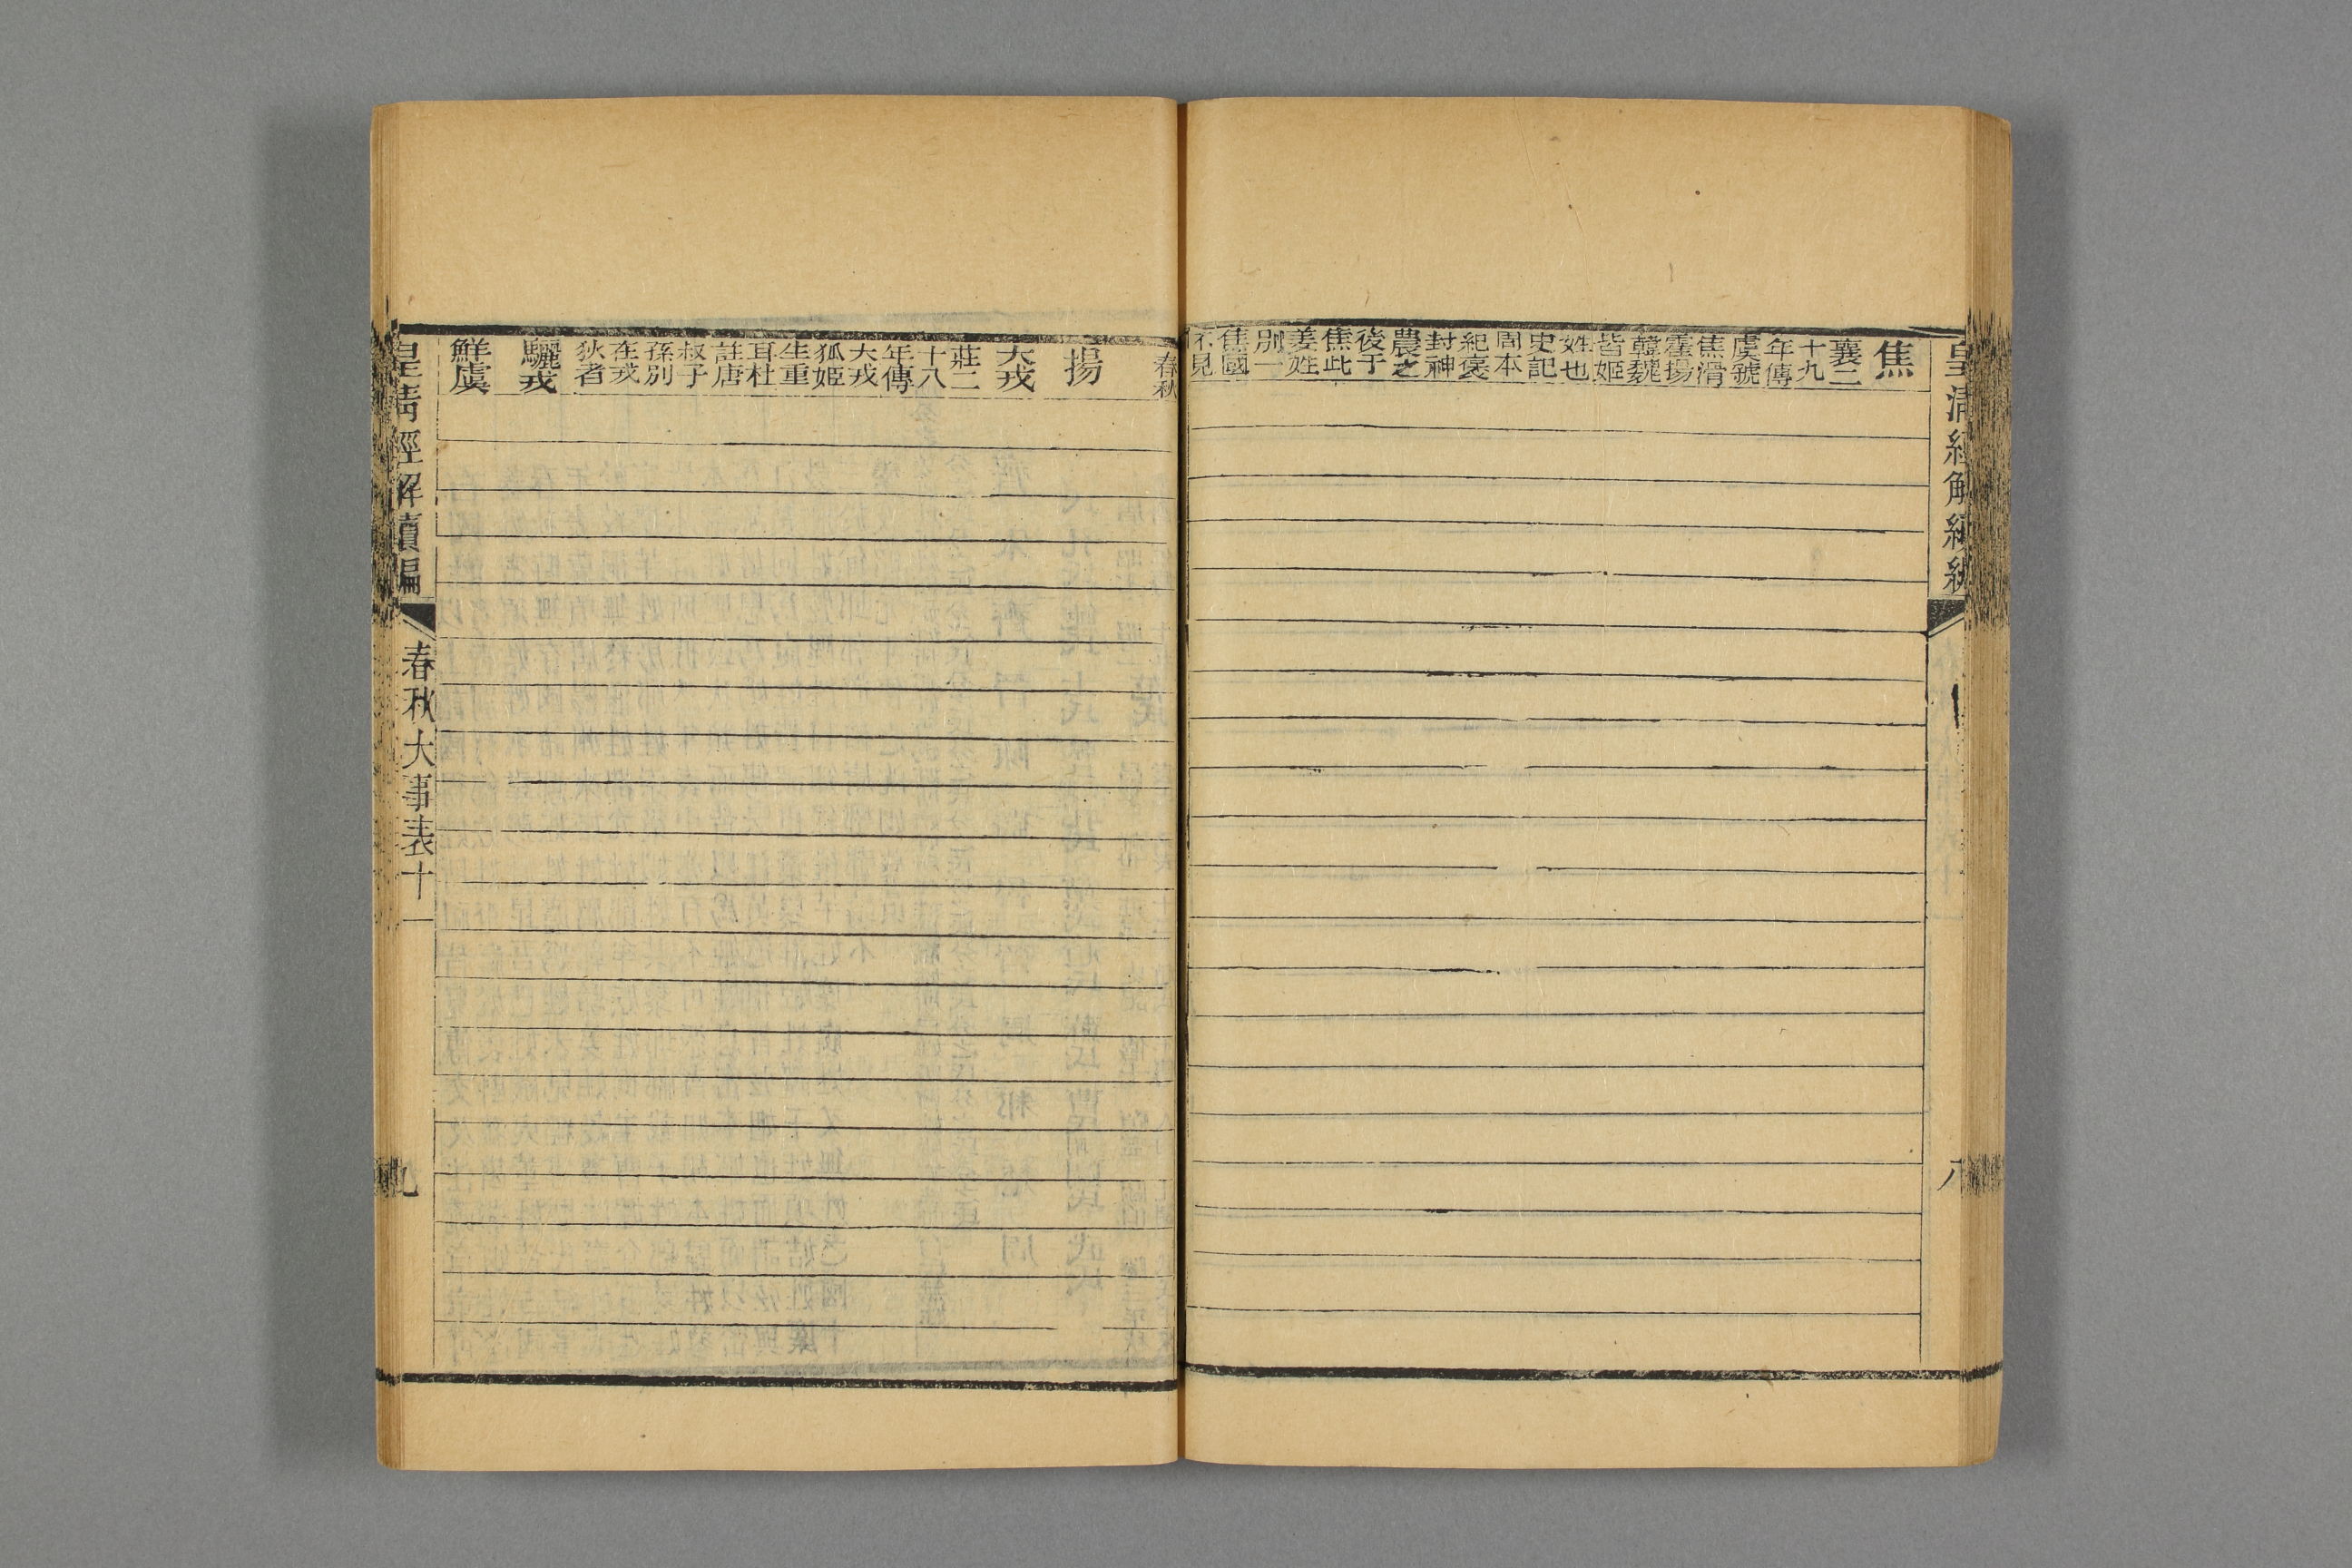 皇清經解續編
八
焦
襄二
十九
年傳
虞虢
焦滑
霍揚
韓魏
皆姬
姓也
史記
周本
紀襃
封神
農之
後于
焦此
姜姓
別一
焦國
不見
春秋
揚
大戎
莊二
十八
年傳
大戎
狐姬
生重
耳杜
註唐
叔子
孫別
在戎
狄者
驪戎
鮮虞
皇清經解續編
春秋大事表十一
九